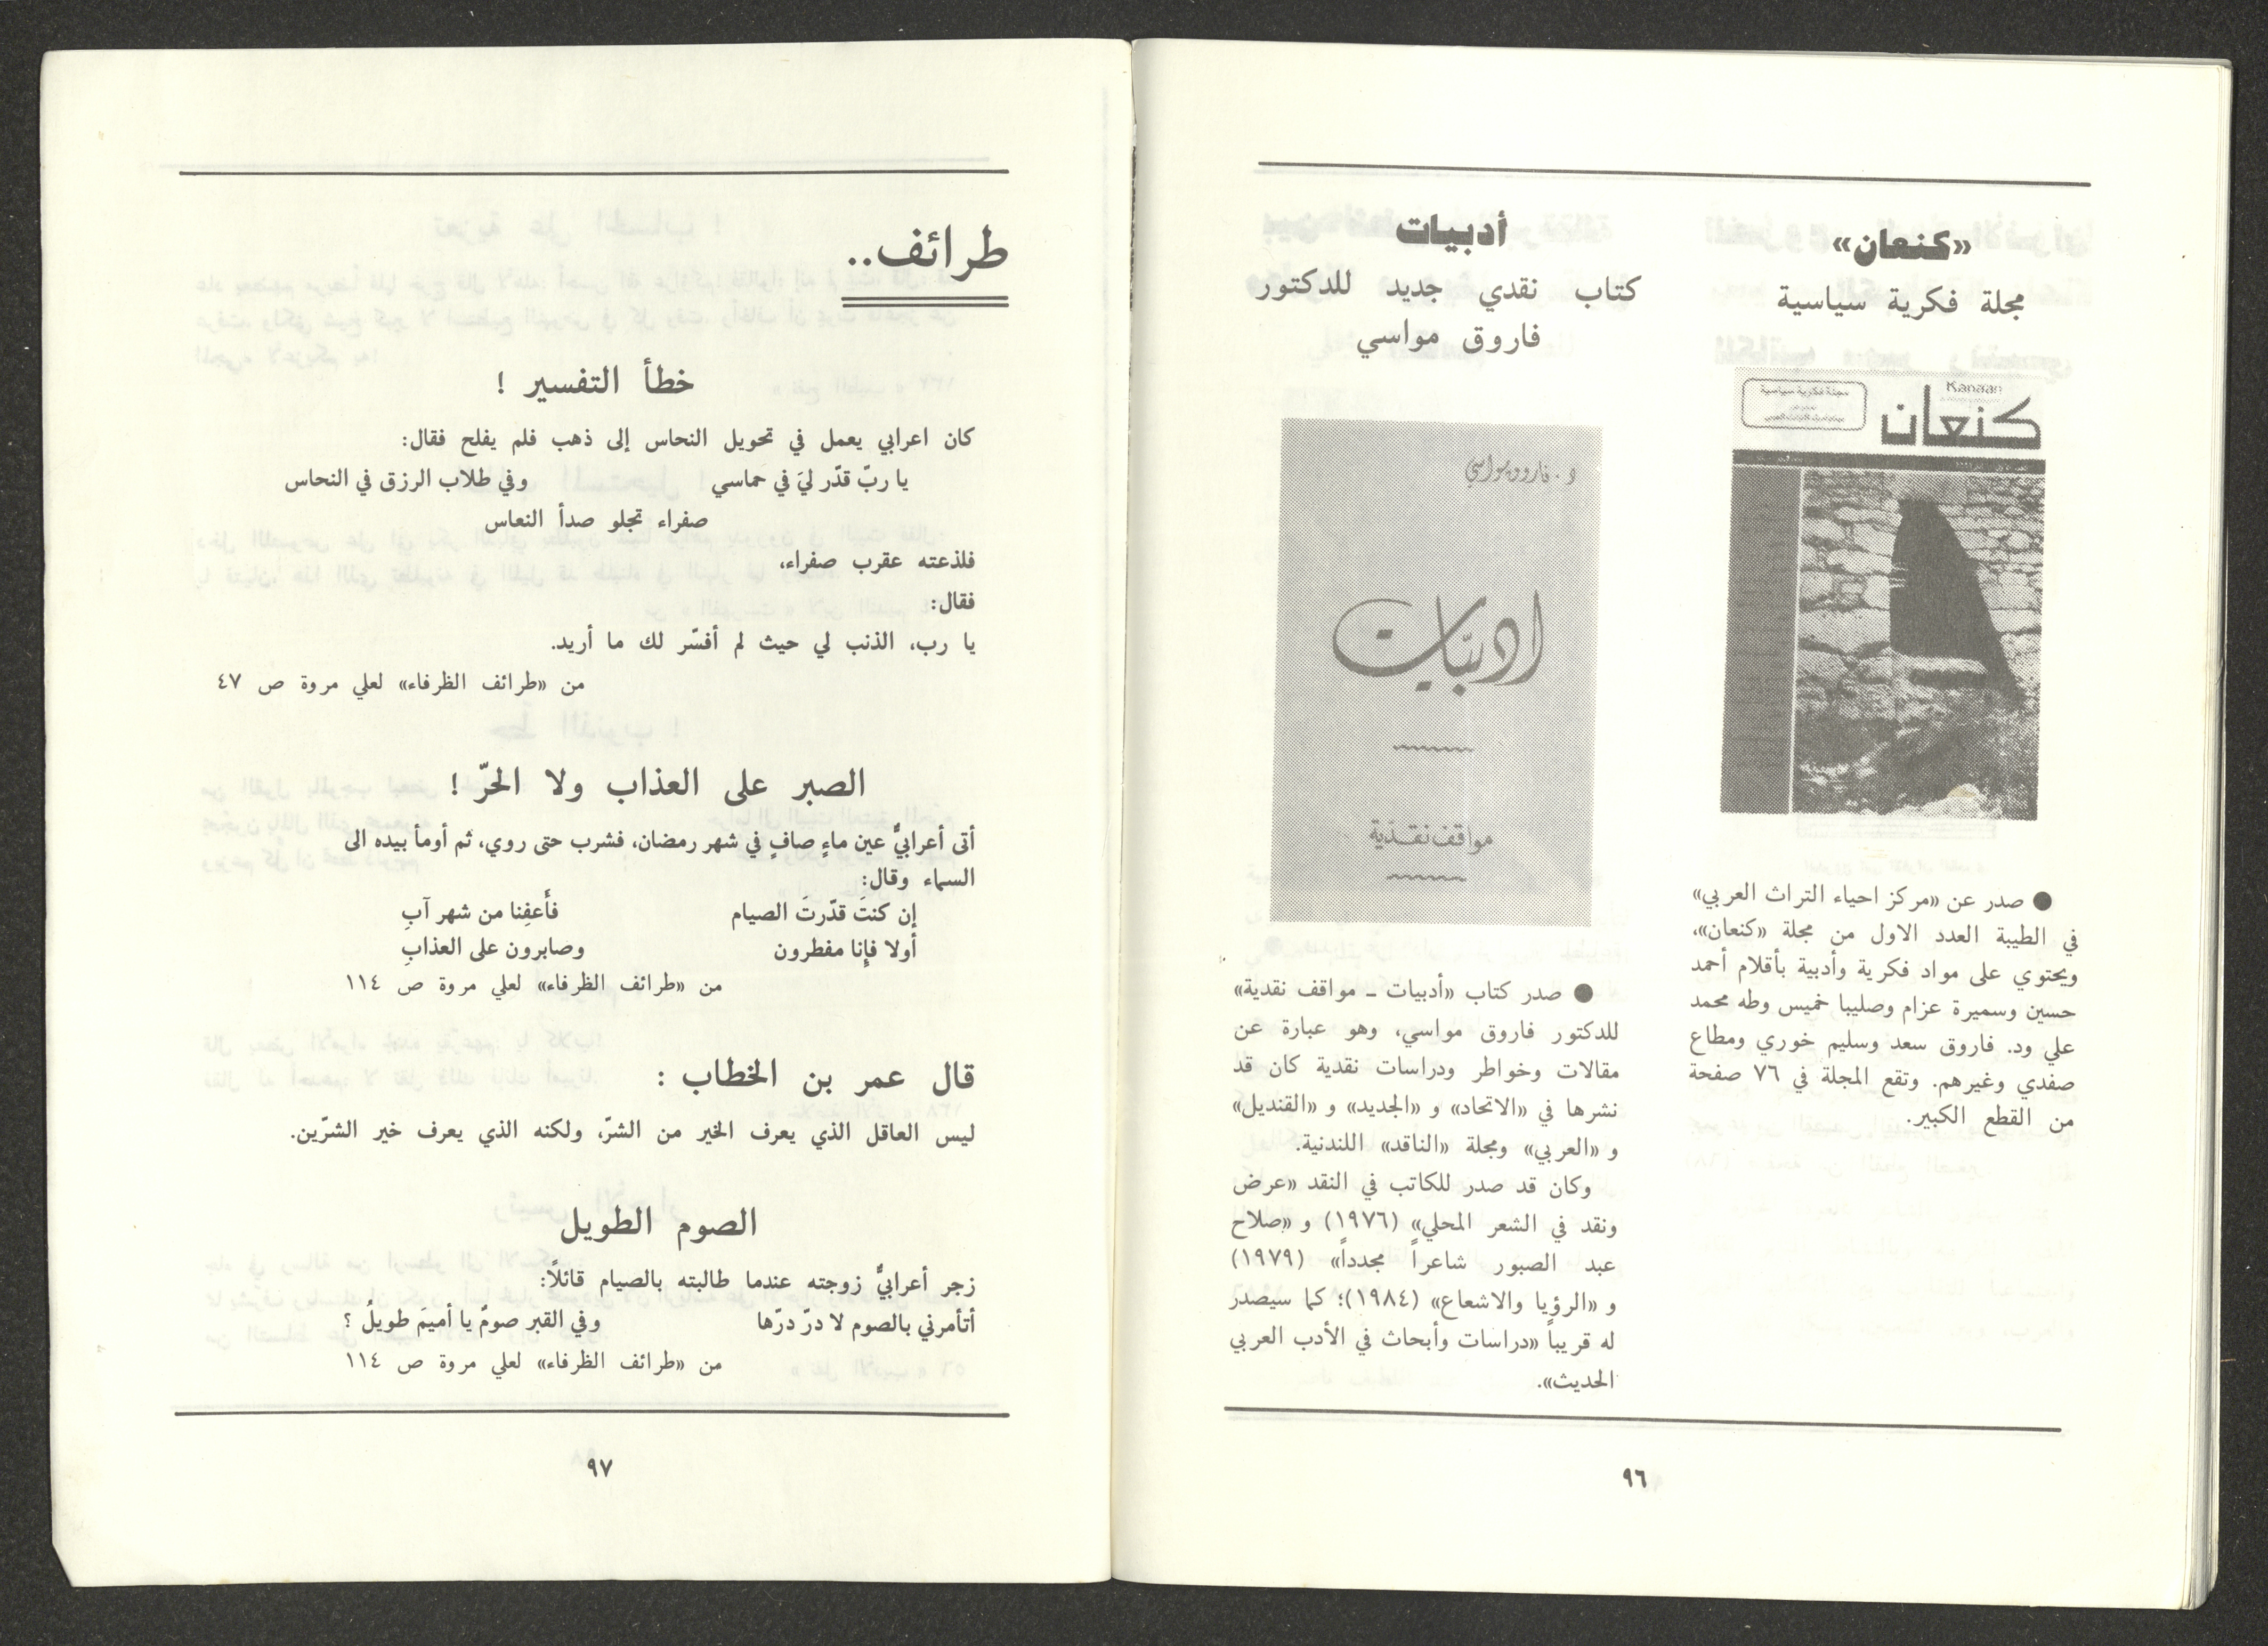 «كنعان»
مجلة فكرية سياسية
Kanaan
كنعان
مجلة فكرية سياسية
● صدر عن «مركز احياء التراث العربي»
في الطيبة العدد الاول من مجلة «كنعان»،
ويحتوي على مواد فكرية وأدبية بأقلام أحمد
حسين وسميرة عزام وصليبا خميس وطه محمد
علي ود. فاروق سعد وسليم خوري ومطاع
صفدي وغيرهم. وتقع المجلة في ٧٦ صفحة
من القطع الكبير.
أدبيات
كتاب نقدي جديد للدكتور
فاروق مواسي
د. فاروق مواسي
ادبيّات
مواقف نقديّة
● صدر كتاب «أدبيات ـ مواقف نقدية»
للدكتور فاروق مواسي، وهو عبارة عن
مقالات وخواطر ودراسات نقدية كان قد
نشرها في «الاتحاد» و «الجديد» و «القنديل»
و «العربي» ومجلة «الناقد» اللندنية.
وكان قد صدر للكاتب في النقد «عرض
ونقد في الشعر المحلي» (١٩٧٦) و «صلاح
عبد الصبور شاعراً مجدداً» (١٩٧٩)
و «الرؤيا والاشعاع» (١٩٨٤)؛ كما سيصدر
له قريباً «دراسات وأبحاث في الأدب العربي
الحديث».
٩٦
طرائف..
خطأ التفسير !
كان اعرابي يعمل في تحويل النحاس إلى ذهب فلم يفلح فقال:
يا ربّ قدّر ليَ في حَماسي وفي طلاب الرزق في النحاس
صفراء تجلو صدأ النعاس
فلذعته عقرب صفراء،
فقال:
يا رب، الذنب لي حيث لم أفسّر لك ما أريد.
من «طرائف الظرفاء» لعلي مروة ص ٤٧
الصبر على العذاب ولا الحرّ !
أتى أعرابيٌّ عين ماءٍ صافٍ في شهر رمضان، فشرب حتى روي، ثم أومأ بيده الى
السماء وقال:
إن كنتَ قدّرتَ الصيام فأَعفِنا من شهر آبِ
أولا فإنا مفطرون وصابرون على العذابِ
من «طرائف الظرفاء» لعلي مروة ص ١١٤
قال عمر بن الخطاب :
ليس العاقل الذي يعرف الخير من الشرّ، ولكنه الذي يعرف خير الشرّين.
الصوم الطويل
زجر أعرابيٌّ زوجته عندما طالبته بالصيام قائلاً:
أتأمرني بالصوم لا درّ درّها وفي القبر صومٌ يا أميمَ طويلُ ؟
من «طرائف الظرفاء» لعلي مروة ص ١١٤
٩٧